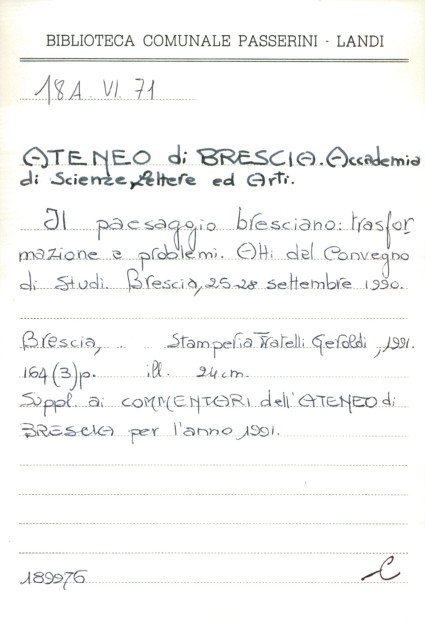 BIBLIOTECA COMUNALE PASSERINI - LANDI
18A. VI. 71
ATENEO di BRESCIA. Accademia
di Scienze, Lettere ed Arti.
Il paesaggio bresciano: trasfor
mazione e problemi. Atti del Convegno
di Studi. Brescia, 25-28 settembre 1990.
Brescia, Stamperia Fratelli Geroldi, 1991.
164 (3) p. ill. 24 cm.
Suppl. ai COMMENTARI dell'ATENEO di
BRESCIA per l'anno 1991.
189976